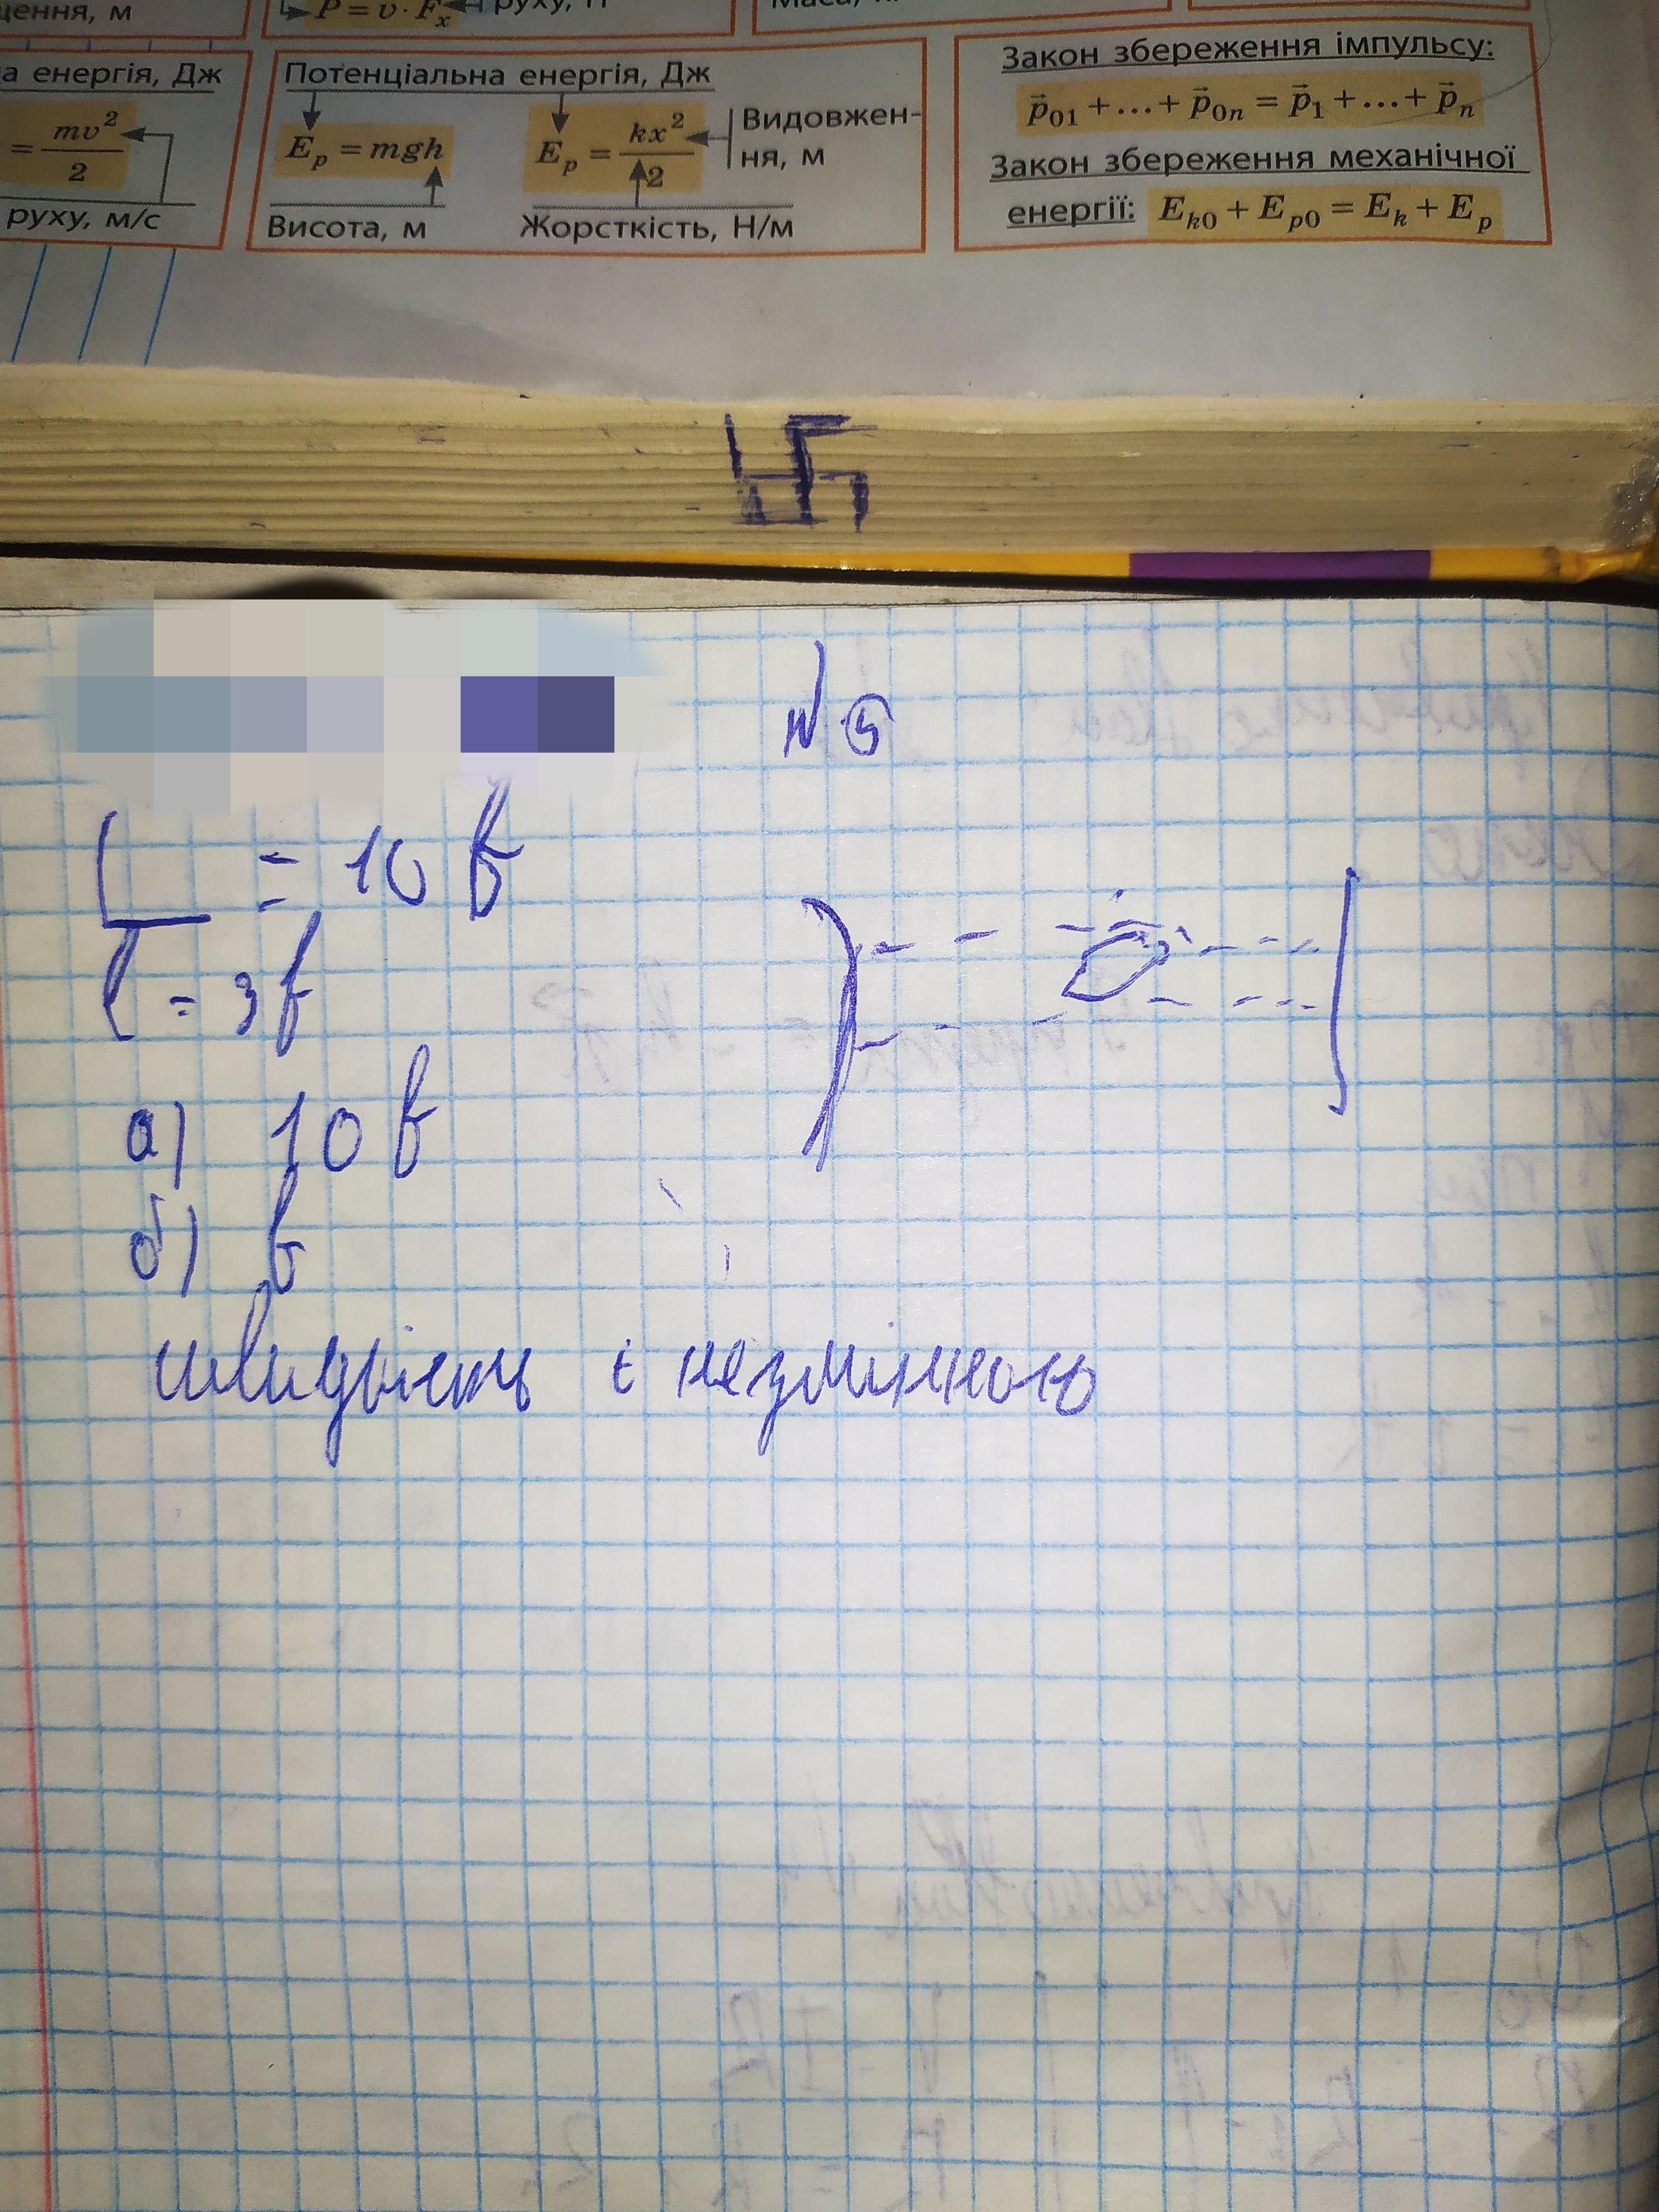 щення, м
P = υ · Fₓ
руху, Н
Маса,
а енергія, Дж
= mυ²/2
руху, м/с
Потенціальна енергія, Дж
Eₚ = mgh
Eₚ = kx²/2
Видовжен-
ня, м
Висота, м
Жорсткість, Н/м
Закон збереження імпульсу:
p⃗₀₁ + ... + p⃗₀ₙ = p⃗₁ + ... + p⃗ₙ
Закон збереження механічної
енергії: Eₖ₀ + Eₚ₀ = Eₖ + Eₚ
N 5
L = 10 в
l = 3 в
а) 10 в
б) в
швидкість є незмінною